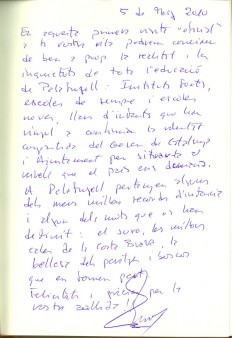 5 de Maig 2010
En aquesta primera visita "oficial"
a la vostra vila podrem conèixer
de ben a prop la realitat i les
inquietuds de tota l'educació
de Palafrugell: Instituts forts,
escoles de sempre i escoles
noves, llars d'infants que han
vingut a confirmar la voluntat
compartida del Govern de Catalunya
i Ajuntament per situar-la al
nivell que el país ens demana.
A Palafrugell pertanyen alguns
dels meus millors records d'infància
i algun dels mots que us han
definit: el suro, les millors
cales de la Costa Brava, la
bellesa dels paratges i boscos
que en formen part.
Felicitats i gràcies per la
vostra acollida!